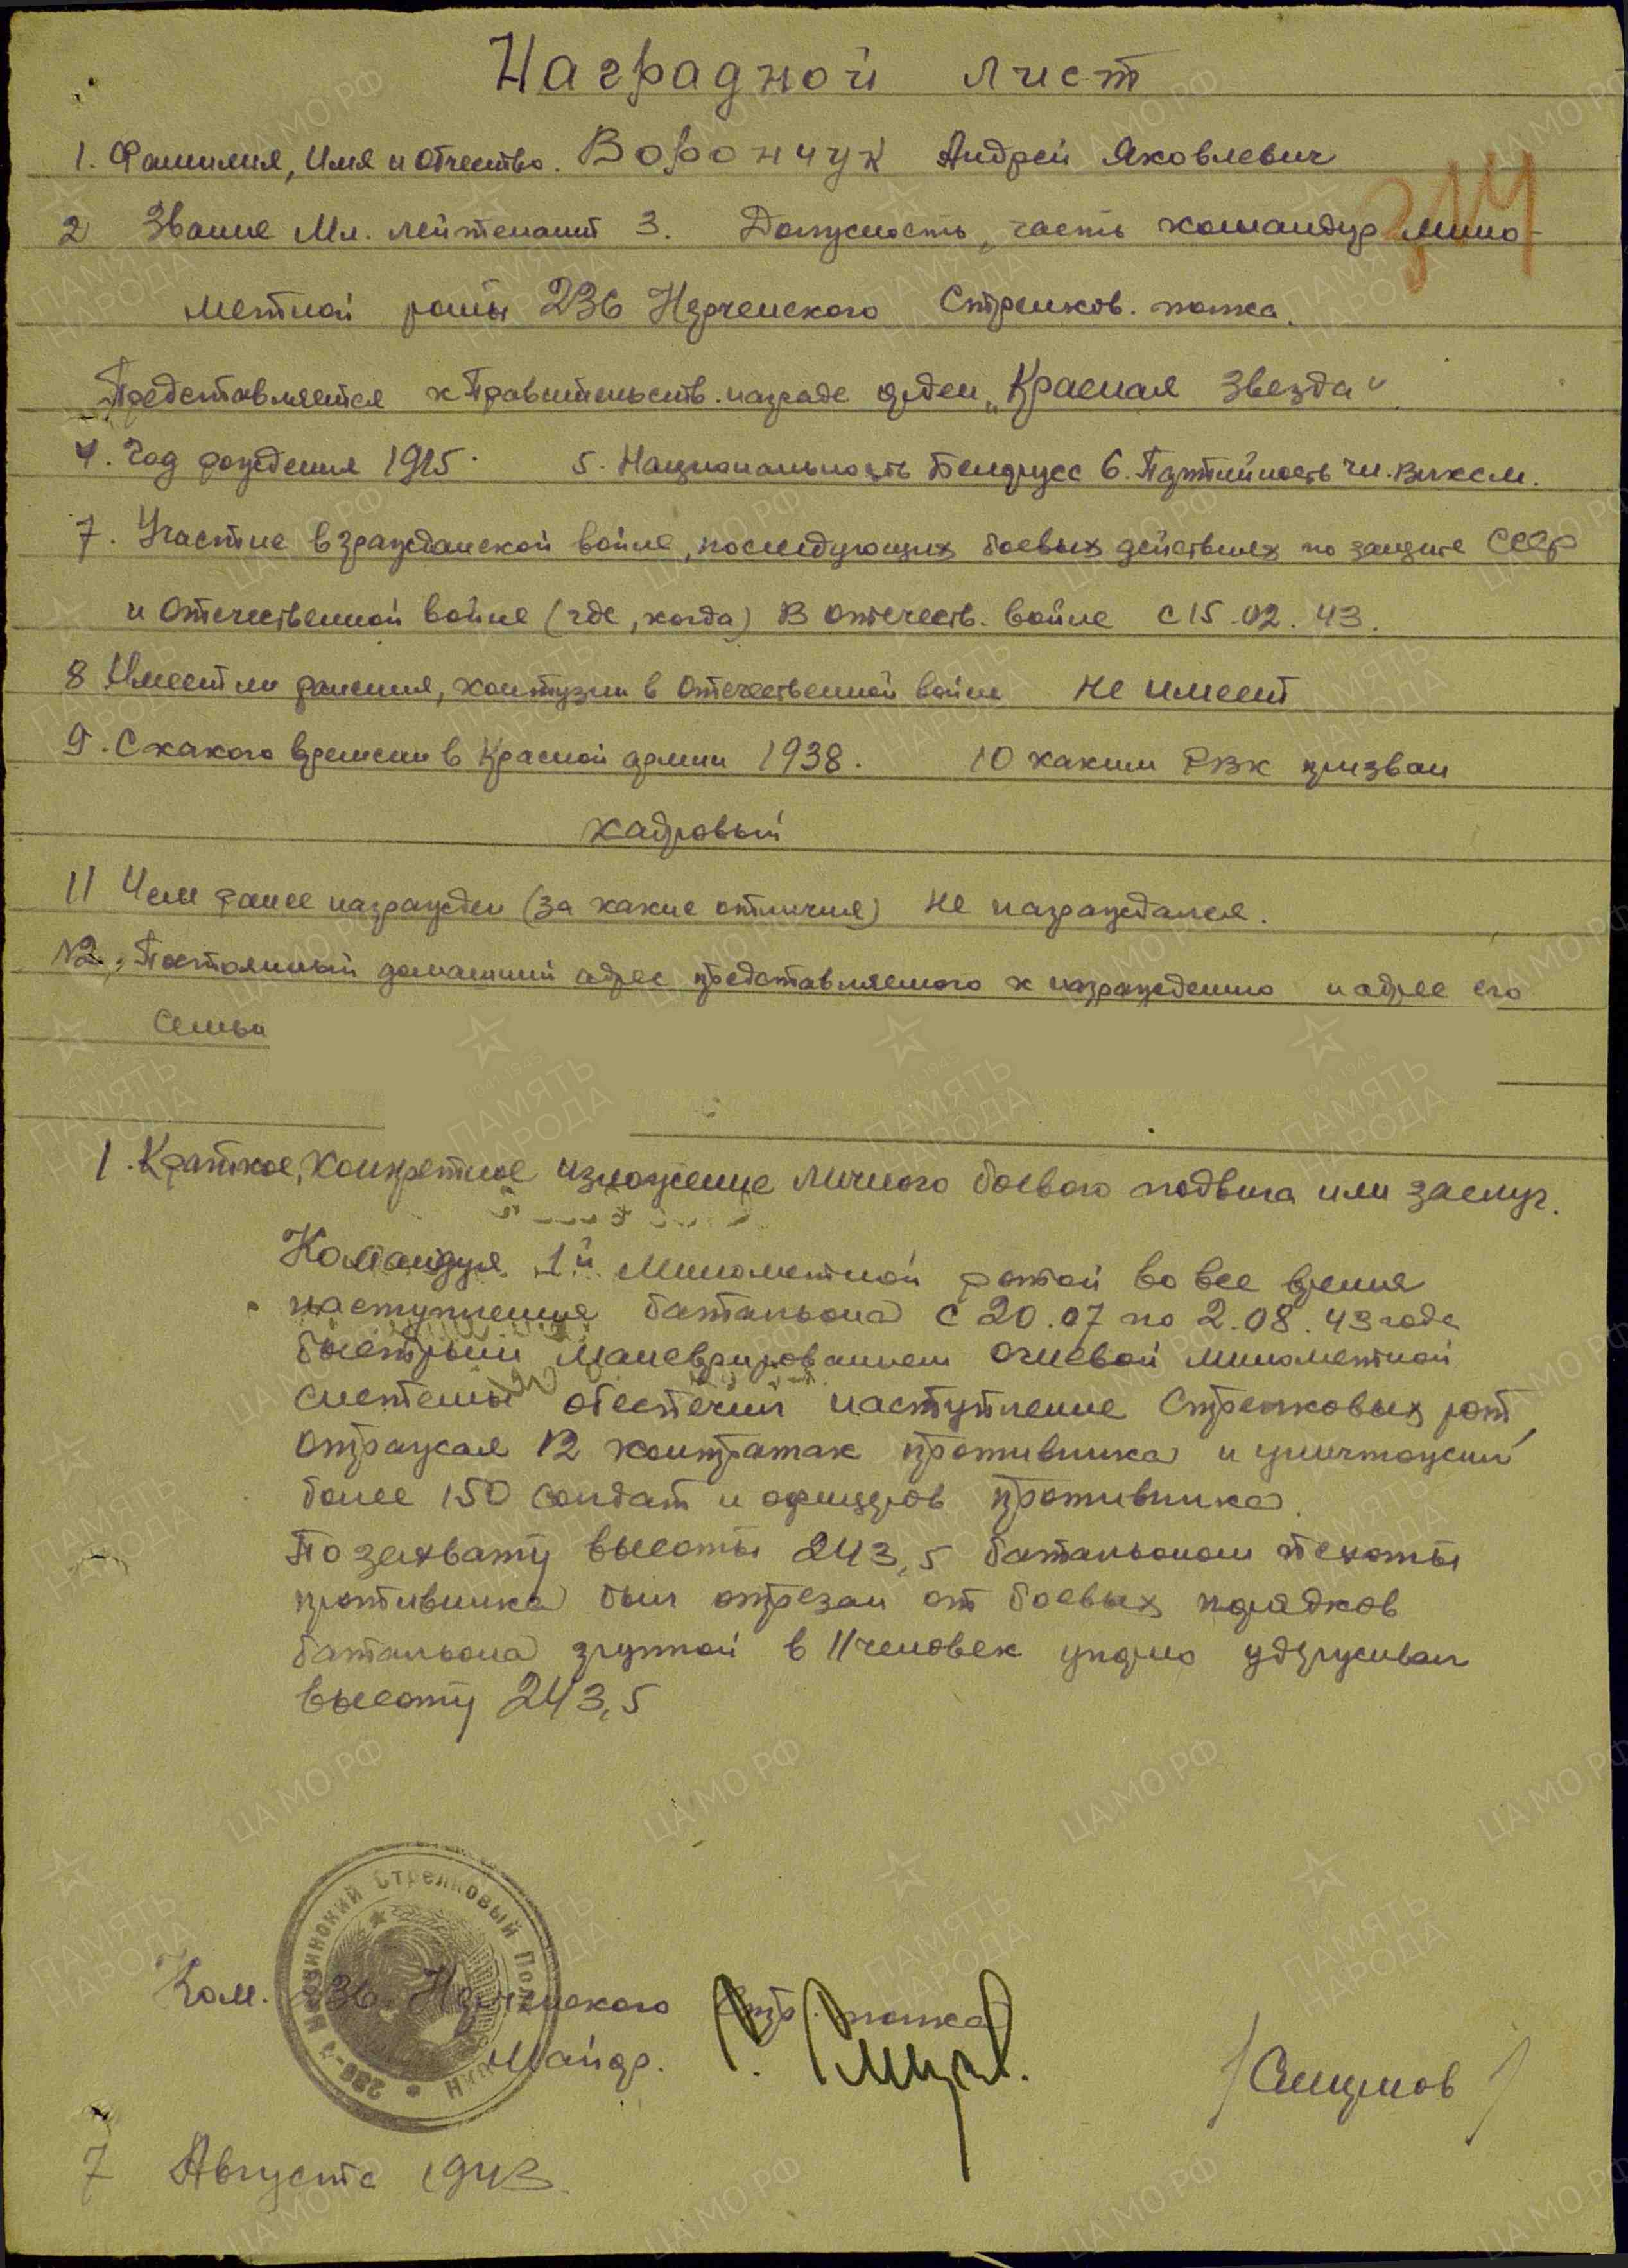 Наградной лист
1. Фамилия, Имя и Отчество. Ворончук Андрей Яковлевич
314
2 Звание Мл. лейтенант 3. Должность, часть командир мино-
метной роты 236 Нерченского Стрелков. полка.
Представляется к Правительств. награде орден „Красная Звезда"
4. Год рождения 1915. 5. Национальность Белорусс 6. Партийность чл. ВЛКСМ.
7. Участие в гражданской войне, последующих боевых действиях по защите СССР
и Отечественной войне (где, когда) В отечеств. войне с 15.02.43.
8 Имеет ли ранения, контузии в Отечественной войне не имеет
9. С какого времени в Красной армии 1938. 10 каким РВК призван
кадровый
11 Чем ранее награжден (за какие отличия) не награждался.
12. Постоянный домашний адрес представляемого к награждению и адрес его
семьи
1. Краткое, конкретное изложение личного боевого подвига или заслуг.
Командуя 1й Минометной ротой во все время
наступления батальона с 20.07 по 2.08.43 года
быстрым маневрированием огневой минометной
системы обеспечил наступление Стрелковых рот,
отражая 12 контратак противника и уничтожил
более 150 солдат и офицеров противника.
По захвату высоты 243,5 батальоном пехоты
противника был отрезан от боевых порядков
батальона группой в 11 человек упорно удерживал
высоту 243,5
Стрелковый Полк
Ком. 236 Нерченского стр. полка
Майор.
/Смирнов/
7 Августа 1943
ЦАМО РФ
ПАМЯТЬ НАРОДА